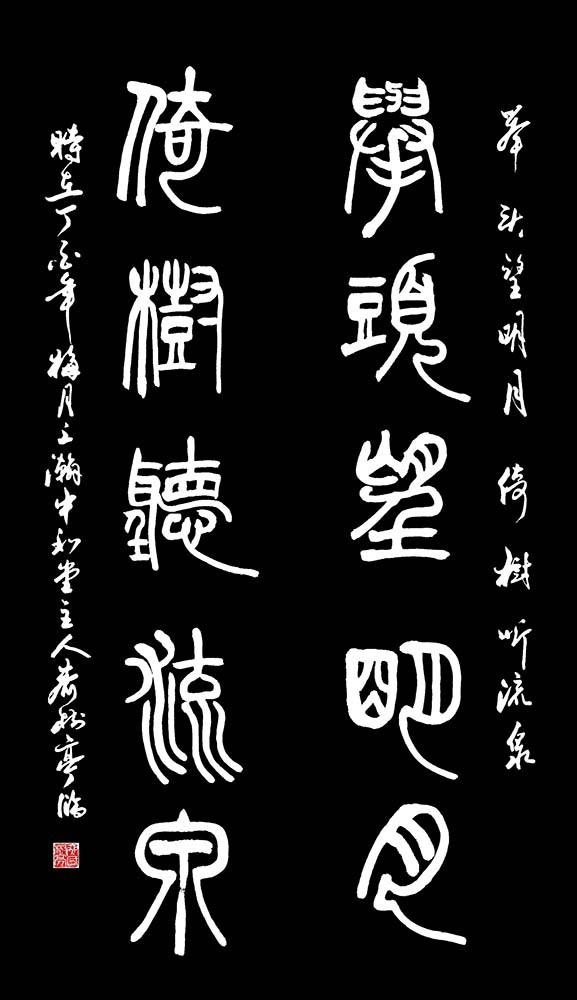 举头望明月 倚樹听流泉
舉頭望明月
倚樹聽流泉
時在丁酉年梅月 瀚中和堂主人